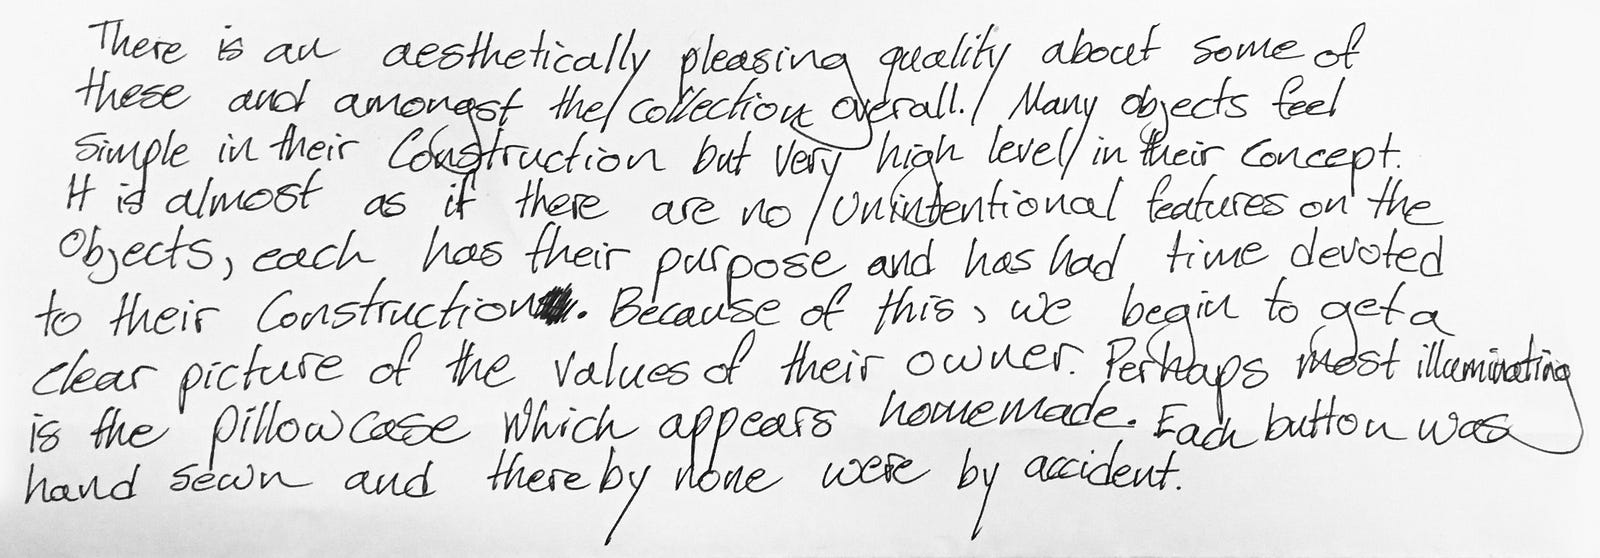 There is an aesthetically pleasing quality about some of
these and amongst the collection overall. Many objects feel
simple in their construction but very high level in their concept.
It is almost as if there are no unintentional features on the
objects, each has their purpose and has had time devoted
to their construction. Because of this, we begin to get a
clear picture of the values of their owner. Perhaps most illuminating
is the pillowcase which appears homemade. Each button was
hand sewn and thereby none were by accident.